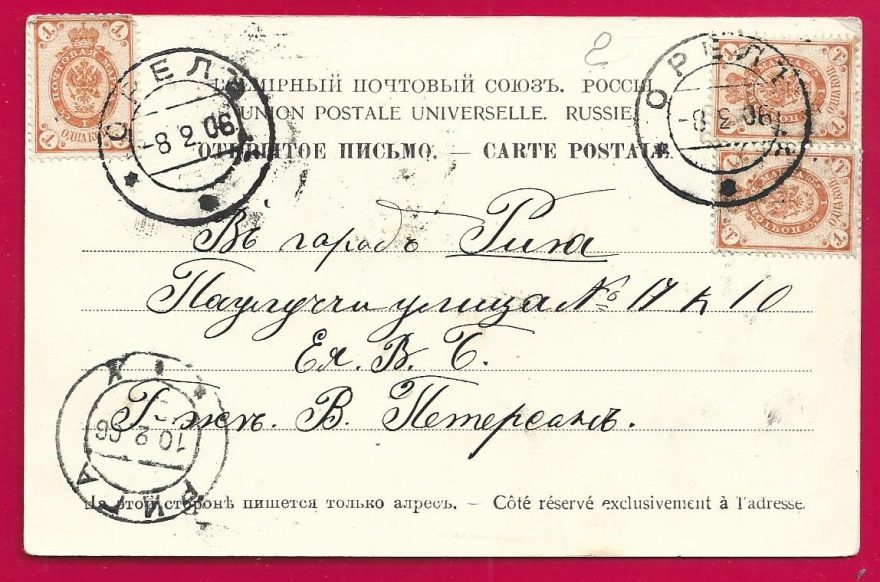 ВСЕМІРНЫЙ ПОЧТОВЫЙ СОЮЗЪ. РОССІЯ.
UNION POSTALE UNIVERSELLE. RUSSIE.
ОТКРЫТОЕ ПИСЬМО. — CARTE POSTALE.
ОРЕЛЪ
-8 2 06
ОРЕЛЪ
-8 2 06
Въ городъ Рига
Паулуччи улица № 17 к 10
Ея. В. Б.
Г-жѣ. В. Петерсонъ.
РИГА
10 2 06
На этой сторонѣ пишется только адресъ. — Côté réservé exclusivement à l'adresse.